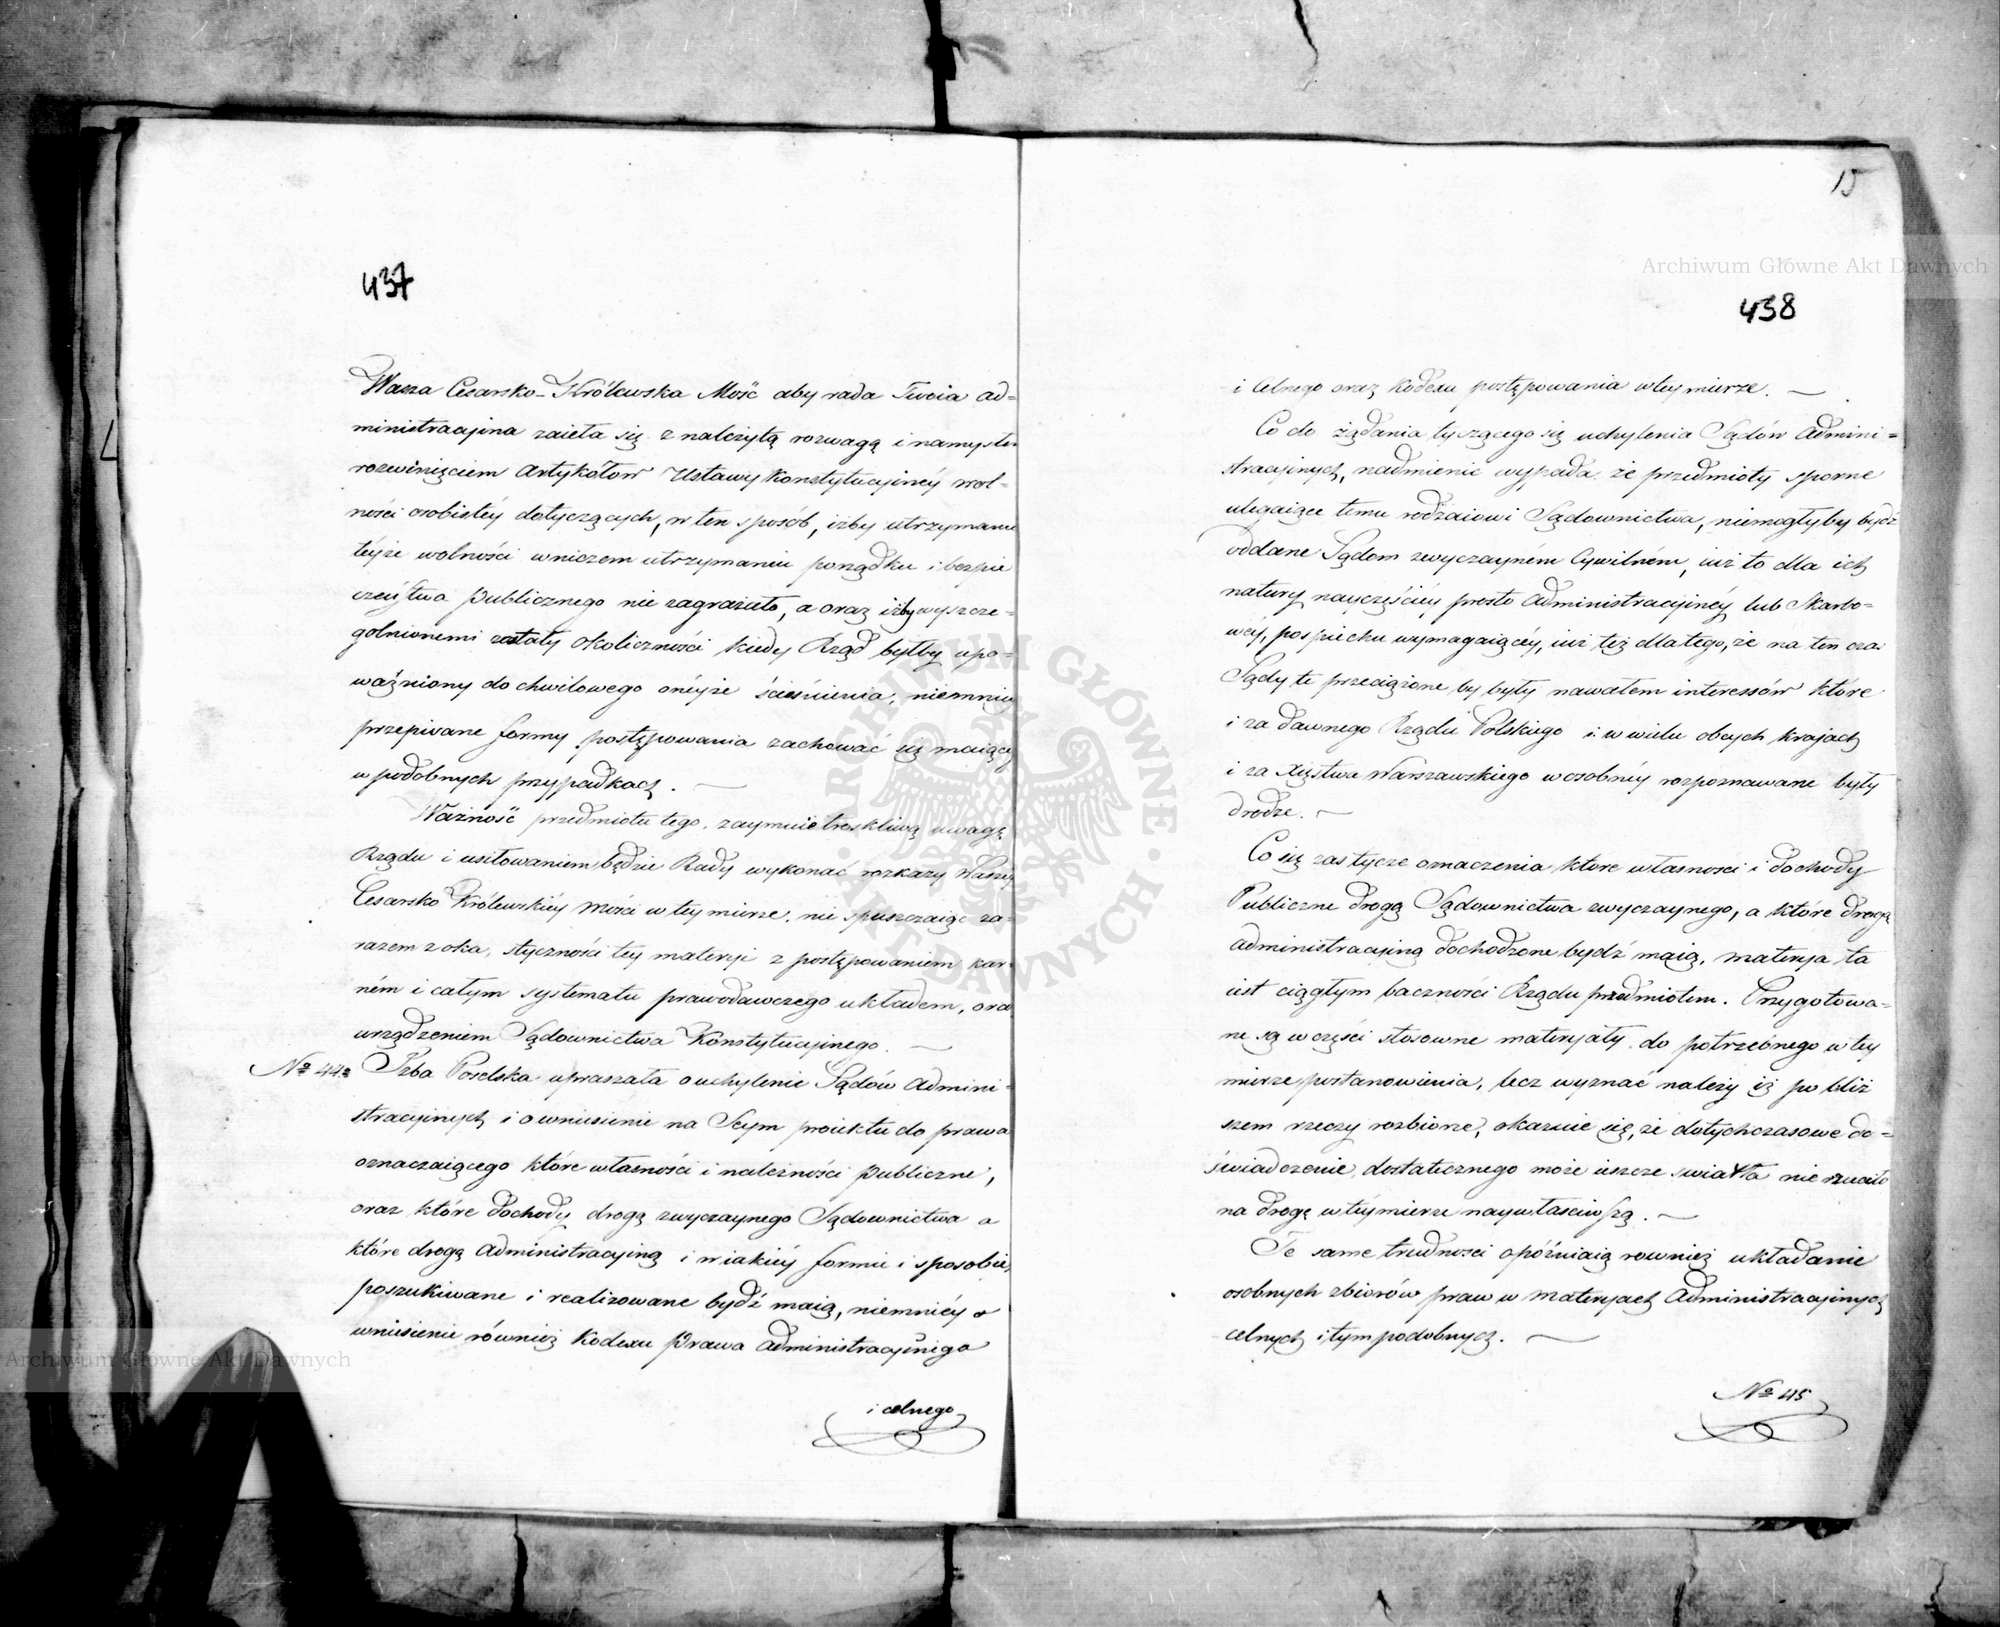 437
Wasza Cesarsko-Królewska Mość aby rada Twoia ad=
ministracyina zaieła się z należytą rozwagą i namysłem
rozwinięciem Artykółow Ustawy Konstytucyinéy wol-
ności osobistéy dotyczących, w ten sposób, iżby utrzymanie
téyże wolności wniczem utrzymaniu porządku i bezpie
czeństwa publicznego nie zagrażało, a oraz iżby wyszcze-
gólnionemi zostały okoliczności kiedy Rząd byłby upo=
ważniony do chwilowego onéyże ścieśnienia, niemniéy
przepisane formy postępowania zachować się maiące
w podobnych przypadkach. —
Ważność przedmiotu tego, zaymuie troskliwą uwagę
Rządu i usiłowaniem będzie Rady wykonać rozkazy Waszéy
Cesarsko Królewskiéy Mości w tey mierze, nie spuszczaiąc za-
razem z oka, styczności tey materyi z postępowaniem kar-
ném i całym systematu prawodawczego układem, oraz
urządzeniem Sądownictwa Konstytucyinego. —
№ 44. Izba Poselska upraszała o uchylenie Sądów Admini-
stracyinych i o wniesienie na Seym proiektu do prawa
oznaczaiącego które własności i należności publiczne,
oraz które dochody drogą zwyczaynego Sądownictwa a
które drogą Administracyiną i w iakiéy formie i sposobie,
poszukiwane i realizowane bydź maią, niemniéy o
wniesienie również Kodexu Prawa Administracyinego
i celnego
15
438
i Celnego oraz Kodexu postępowania wtey mierze. —
Co do żądania tyczącego się uchylenia Sądów Admini=
stracyinych, nadmienić wypada że przedmioty sporne
ulegaiące temu rodzaiowi Sądownictwa, niemogłyby bydź
oddane Sądom zwyczayném Cywilném, iuż to dla ich
natury nayczęściey prosto Administracyinéy lub Skarbo-
wéy, pospiechu wymagaiącéy, iuż też dlatego, że na ten czas
Sądy te przeciążone by były nawałem interessów które
i za dawnego Rządu Polskiego i w wielu obcych krajach
i za Xięstwa Warszawskiego w osobnéy rozpoznawane były
drodze. —
Co się zas tycze oznaczenia które własności i dochody
Publiczne drogą Sądownictwa zwyczaynego, a które drogą
administracyiną dochodzone bydź maią, materya ta
iest ciągłym baczności Rządu przedmiotem. Przygotowa-
ne są w części stosowne materyały do potrzebnego w tey
mierze postanowienia, lecz wyznać należy iż po bliż
szem rzeczy rozbiorze, okazuie się, że dotychczasowe do=
świadczenie, dostatecznego może ieszcze swiatła nie rzuciło
na drogę w téy mierze naywłaściwszą. —
Te same trudnosci opóźniaią rownież układanie
osobnych zbiorów praw w materyach Administracyinych
celnych i tym podobnych. —
№ 45
Archiwum Główne Akt Dawnych
Archiwum Główne Akt Dawnych
ARCHIWUM GŁÓWNE AKT DAWNYCH